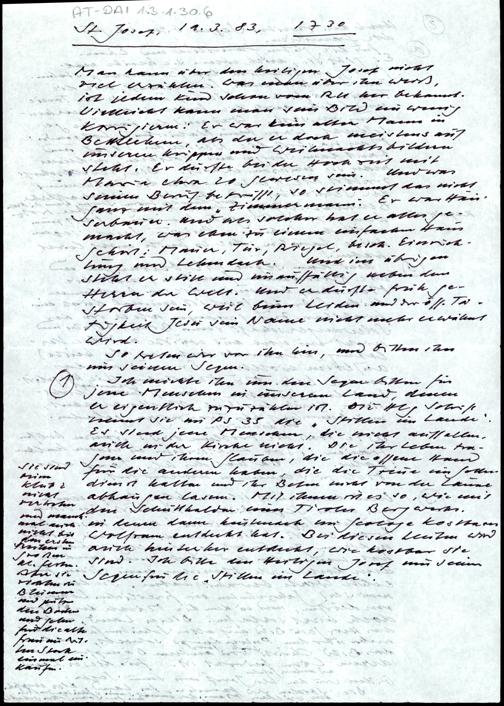 AT-DAI 1.3.1.30.6
St. Josef, 19.3.83, 17 30
Man kann über den heiligen Josef nicht
viel erzählen. Was man über ihn weiß,
ist jedem Kind schon vom RU her bekannt.
Vielleicht kann man sein Bild ein wenig
korrigieren: Er war kein alter Mann in
Bethlehem, als den er doch meistens auf
unseren Krippen und Weihnachtsbildern
steht. Er dürfte bei der Hochzeit mit
Maria etwa gewesen sein. Und was
seinen Beruf betrifft, so stimmt das nicht
ganz mit dem "Zimmermann". Er war Häu-
serbauer. Und als solcher hat er alles ge-
macht, was eben zu einem einfachen Haus
gehört: Mauer, Tür, Riegel, Einrich-
tung und. Und im übrigen
steht er still und unauffällig neben dem
Herrn der Welt. Und er dürfte früh ge-
storben sein, weil beim Leiden und der öff. Tä-
tigkeit Jesu sein Name nicht mehr erwähnt
wird.
So treten wir vor ihn hin, und bitten ihn
um seinen Segen.
1 Ich möchte ihn um den Segen bitten für
jene Menschen in unserem Land, denen
er eigentlich zuzuzählen ist. Die Hlg. Schrift
nennt sie im Ps. 35 die "Stillen im Lande".
Es sind jene Menschen, die nicht auffallen,
auch in der Kirche nicht. Die ihr Leben tra-
gen und ihren Glauben, die die offene Hand
für die anderen haben, die die Treue im Gottes-
dienst halten und ihr Beten nicht von der Laune
abhängen lassen. Mit ihnen ist es so, wie mit
den Schutthalden vom Tiroler Bergwerk,
in denen dann der Geologe Kostbares
Wolfram entdeckt hat. Bei diesen Leuten wird
auch hinterher entdeckt, wie kostbar sie
sind. Ich bitte den Heiligen Josef um seinen
Segen für die "Stillen im Lande".
Sie sind
beim
nicht
und manch-
mal auch
nicht bei
den ersten
Reihen in
großen
Aber sie
richten die
Blumen
und putzen
den Boden
und gehen
für die alte
Frau im 
einmal ein-
kaufen.